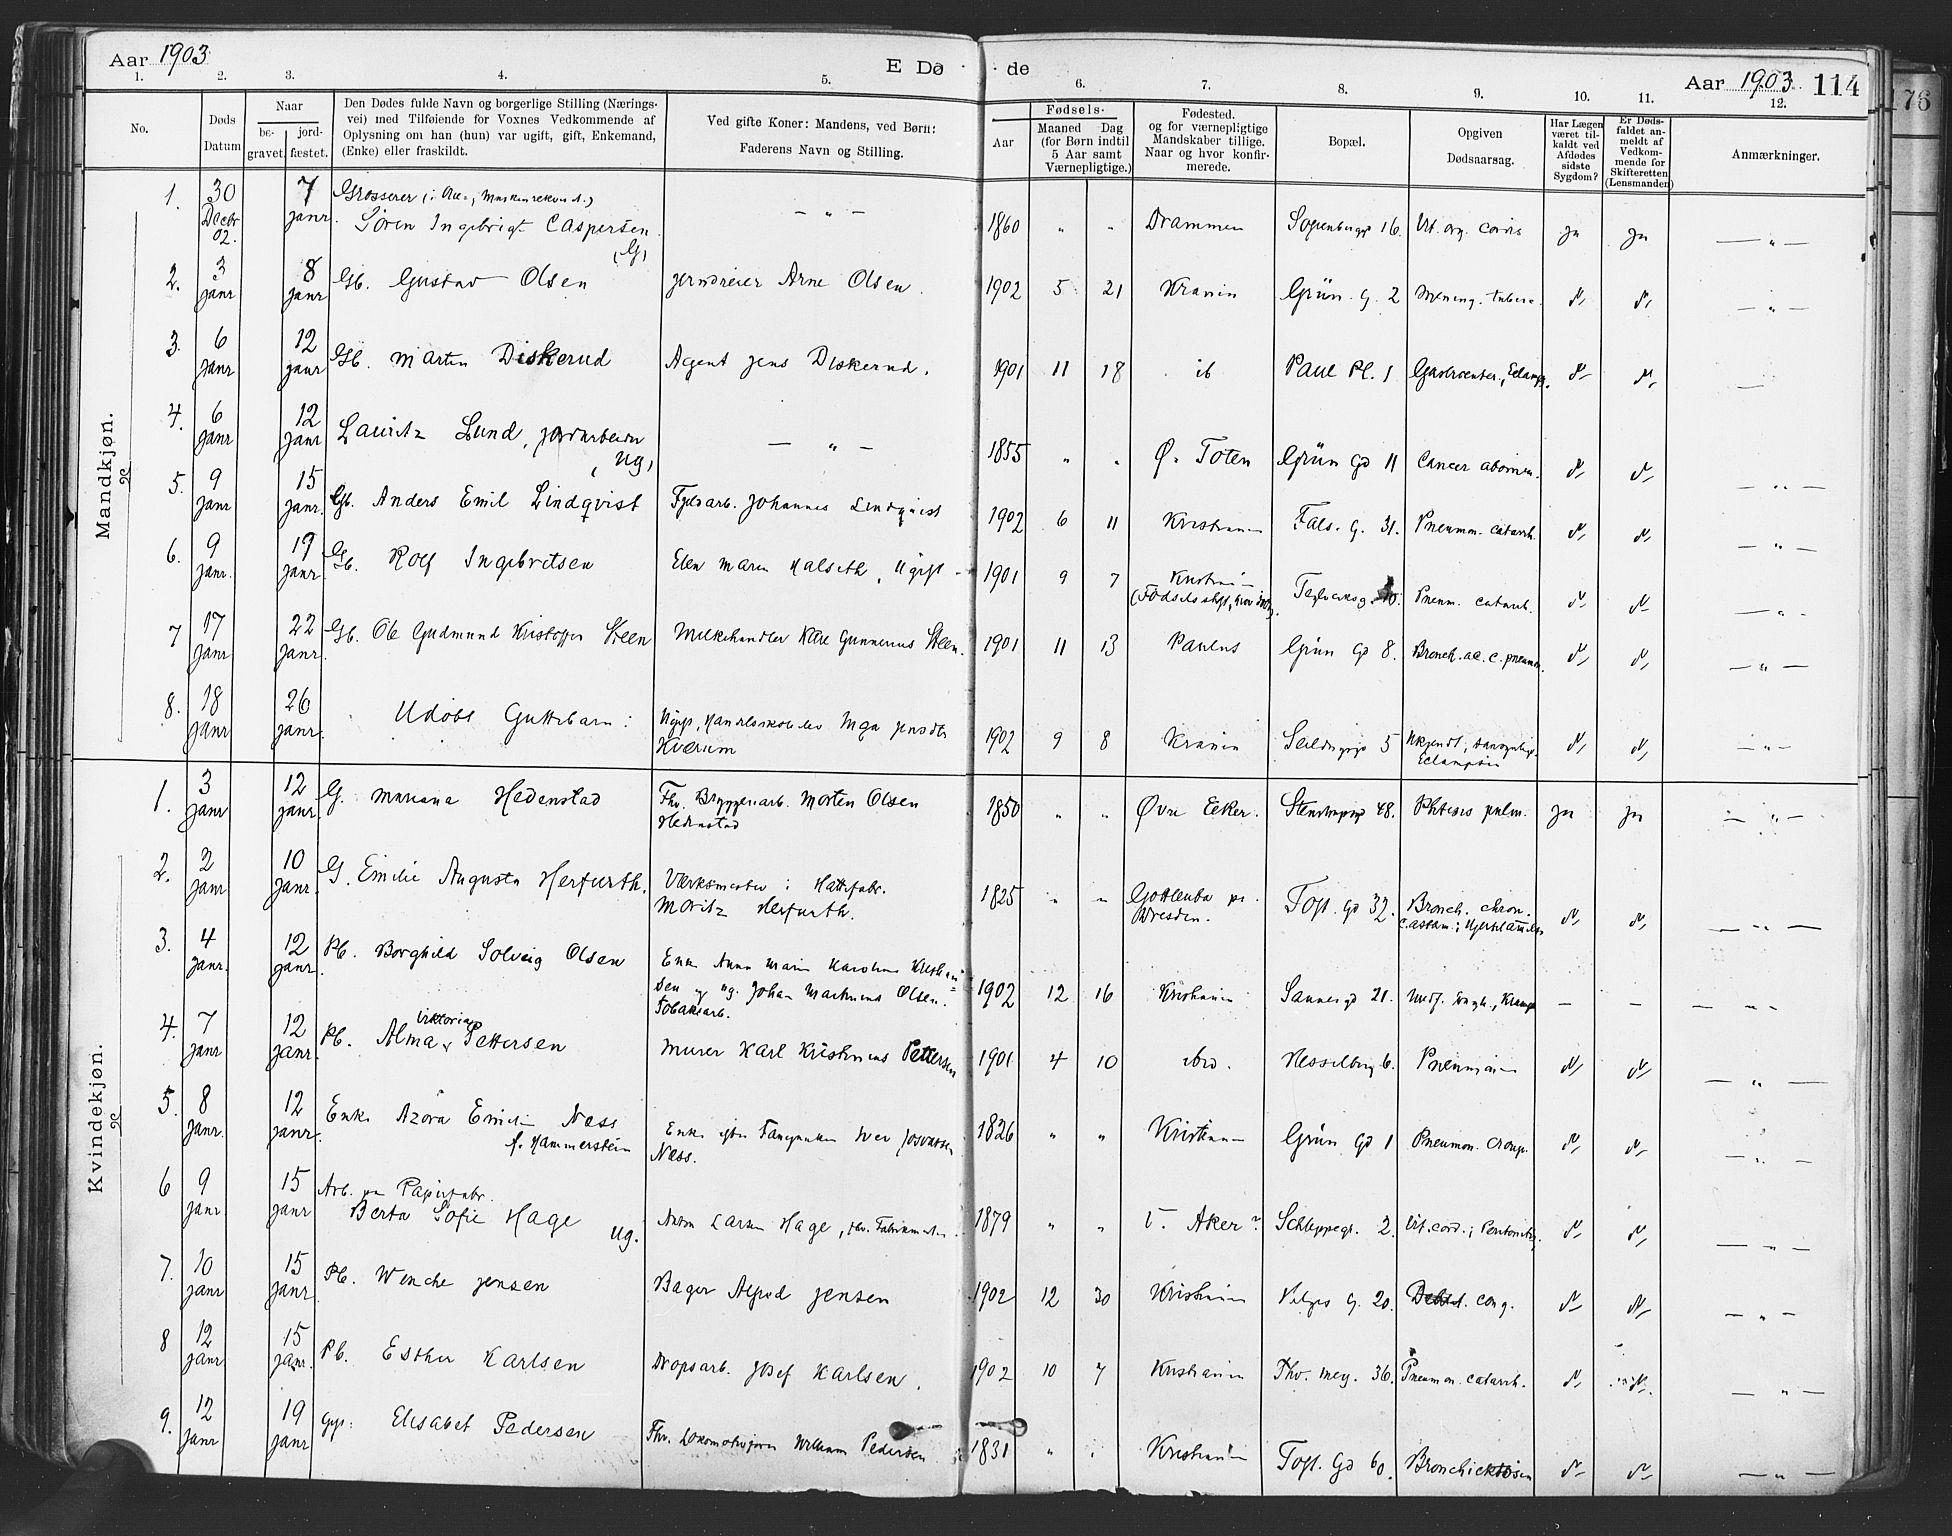 Aar 1903
E Dø de
Aar 1903
114
176
1. 2. 3. 4. 5. 6. 7. 8. 9. 10. 11. 12.
No.
Døds Datum
Naar
be-gravet. jord-fæstet.
Den Dødes fulde Navn og borgerlige Stilling (Nærings-
vei) med Tilføiende for Voxnes Vedkommende af
Oplysning om han (hun) var ugift, gift, Enkemand,
(Enke) eller fraskildt.
Ved gifte Koner: Mandens, ved Børn:
Faderens Navn og Stilling.
Fødsels-
Aar
Maaned Dag
(for Børn indtil
5 Aar samt
Værnepligtige.)
Fødested.
og for værnepligtige
Mandskaber tillige.
Naar og hvor konfir-
merede.
Bopæl.
Opgiven
Dødsaarsag.
Har Lægen
været til-
kaldt ved
Afdødes
sidste
Sygdom?
Er Døds-
faldet an-
meldt af
Vedkom-
mende for
Skifteretten
(Lensmanden)
Anmærkninger.
Mandkjøn.
1. 30 Decbr 02. 7 janr. Grosserer
Søren Ingebrigt Caspersen (G) — " — 1860 " " Drammen 16. Vit. org. cordis ja ja — " —
2. 3 janr 8 janr Gb. Gustav Olsen Jerndreier Arne Olsen. 1902 5 21 Krania Grün. G. 2 Mening. tuberc. d, d, — " —
3. 6 janr 12 janr Gb. Martin Diskerud Agent Jens Diskerud. 1901 11 18 ib Paul Pl. 1 Gastroenter., Eclamps. d, d, —
4. 6 janr 12 janr Lauritz Lund, jordarbeider (ug) — " — 1855 " " Ø. Toten Grün Gd 11 Cancer abdomin. d, d, — " —
5. 9 janr 15 janr. Gb. Anders Emil Lindqvist Fyldarb. Johannes Lindqvist 1902 6 11 Kristiania Fals. G. 31. Pneumon. catarrh. d, d, — " —
6. 9 janr. 19 janr Gb. Rolf Ingebretsen Elen Marie Halseth, Ugift 1901 9 7 Kristiania
(Fødselsstift, 10. Pneum. catarrh. d, d, — " —
7 17 janr 22 janr. Gb. Ole Gudmund Kristoffer Steen Melkehandler Karl Gunnerius Steen. 1901 11 13 Paulus Grün Gd 8. Bronch. ac. c. pneumon. d, d, — " —
8. 18 janr 26 janr. Udøbt Guttebarn: Ugift, Inga
Kværum 1902 9 8 Krania 5 Ukjendt, sandsynligv.
Eclampsia d, d, — " —
Kvindekjøn.
1. 3 janr 12 janr. G. Mariana Hedenstad Fhv. Bryggeriarb. Morten Olsen
Hedenstad 1850 " " Øvre Eeker. 48. Phtisis pulm. ja ja — " —
2. 2 janr 10 janr. G. Emilie Augusta Herfurth. Værksmester i Hattefabr.
Moritz Herfurth. 1825 " " Gottleuba pr.
Dresden. Toft. Gd 32. Bronch. chron.
d, d, — " —
3. 4 janr. 12 janr. Pb. Borghild Solveig Olsen Enke Anna Marie Karoline Kristian-
sen og ug. Johan Martinius Olsen.
Tobaksarb. 1902 12 16 Kristiania Sannergd 21. Medf. svagh., Krampe — — — " —
4. 7 janr 12 janr. Pb. Alma Viktoria Pettersen Murer Karl Kristinius Pettersen 1901 4 10 ibid. Hesselberg 6. Pneumonia d, d, — " —
5. 8 janr. 12 janr. Enke Azora Emilie Næss
f. Hammerstein Enke efter Iver
Næss. 1826 " " Kristiania Grün Gd 1 Pneumon. croup. d, d, — " —
6 9 janr 15 janr Arb. paa Papirfabr.
Berta Sofie Hage ug. Anton Larsen Hage, 1879 " " V. Aker? Schleppegr. 2. Vit. cord.; Peritonitis, d, d, — " —
7. 10 janr 15 janr Pb. Wenche Jensen Bager Alfred Jensen 1902 12 30 Kristiania G. 20. cong. d, d, — " —
8 12 janr 15 janr. Pb. Esther Karlsen Dropsarb. Josef Karlsen. 1902 10 7 Kristiania Thv. mey. 36. Pneumon. catarrh. d, — " —
9. 12 janr 19 janr Elisabet Pedersen Fhv. William Pedersen 1831 " Kristiania Toft. Gd 60. d, d, — " —